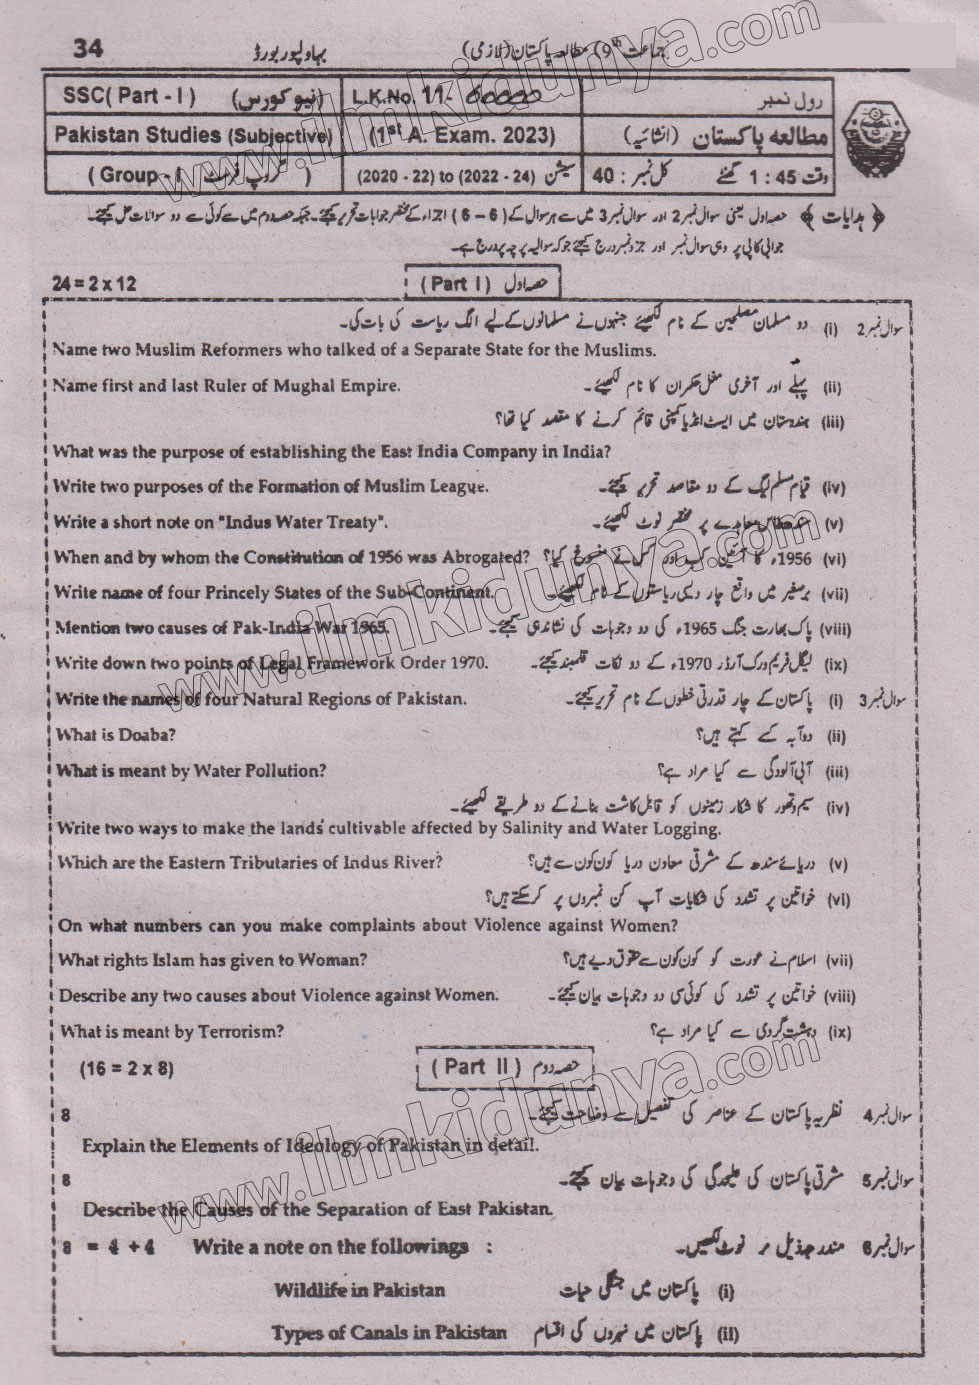 34 بہاولپور بورڈ جماعت 9th) مطالعہ پاکستان (لازمی)
SSC( Part - I ) (نیو کورس) L.K.No. 11- رول نمبر
Pakistan Studies (Subjective) (1st A. Exam. 2023) مطالعہ پاکستان (انشائیہ)
( Group - I گروپ فرسٹ ) (2020 - 22) to (2022 - 24) سیشن کل نمبر : 40 وقت 1 : 45 گھنٹے
﴿ ہدایات ﴾ حصہ اول یعنی سوال نمبر 2 اور سوال نمبر 3 میں سے ہر سوال کے ( 6 – 6 ) اجزاء کے مختصر جوابات تحریر کیجئے۔ جبکہ حصہ دوم میں سے کوئی سے دو سوالات حل کیجئے۔
جوابی کاپی پر وہی سوال نمبر اور جزو نمبر درج کیجئے جو کہ سوالیہ پرچہ پر درج ہے۔
24 = 2 x 12 ( Part I ) حصہ اول
سوال نمبر 2 (i) دو مسلمان مصلحین کے نام لکھیئے جنہوں نے مسلمانوں کے لیے الگ ریاست کی بات کی۔
Name two Muslim Reformers who talked of a Separate State for the Muslims.
Name first and last Ruler of Mughal Empire. (ii) پہلے اور آخری مغل حکمران کا نام لکھیئے۔
(iii) ہندوستان میں ایسٹ انڈیا کمپنی قائم کرنے کا مقصد کیا تھا؟
What was the purpose of establishing the East India Company in India?
Write two purposes of the Formation of Muslim League. (iv) قیام مسلم لیگ کے دو مقاصد تحریر کیجئے۔
Write a short note on "Indus Water Treaty". (v) سندھ طاس معاہدے پر مختصر نوٹ لکھیئے۔
When and by whom the Constitution of 1956 was Abrogated? (vi) 1956ء کا آئین کب اور کس نے منسوخ کیا؟
Write name of four Princely States of the Sub-Continent. (vii) برصغیر میں واقع چار دیسی ریاستوں کے نام لکھیئے۔
Mention two causes of Pak-India War 1965. (viii) پاک بھارت جنگ 1965ء کی دو وجوہات کی نشاندہی کیجئے۔
Write down two points of Legal Framework Order 1970. (ix) لیگل فریم ورک آرڈر 1970ء کے دو نکات قلمبند کیجئے۔
Write the names of four Natural Regions of Pakistan. سوال نمبر 3 (i) پاکستان کے چار قدرتی خطوں کے نام تحریر کیجئے۔
What is Doaba? (ii) دوآبہ کسے کہتے ہیں؟
What is meant by Water Pollution? (iii) آبی آلودگی سے کیا مراد ہے؟
(iv) سیم و تھور کا شکار زمینوں کو قابل کاشت بنانے کے دو طریقے لکھیئے۔
Write two ways to make the lands cultivable affected by Salinity and Water Logging.
Which are the Eastern Tributaries of Indus River? (v) دریائے سندھ کے مشرقی معاون دریا کون کون سے ہیں؟
(vi) خواتین پر تشدد کی شکایات آپ کن نمبروں پر کر سکتے ہیں؟
On what numbers can you make complaints about Violence against Women?
What rights Islam has given to Woman? (vii) اسلام نے عورت کو کون کون سے حقوق دیے ہیں؟
Describe any two causes about Violence against Women. (viii) خواتین پر تشدد کی کوئی سی دو وجوہات بیان کیجئے۔
What is meant by Terrorism? (ix) دہشت گردی سے کیا مراد ہے؟
(16 = 2 x 8) ( Part II ) حصہ دوم
8 سوال نمبر 4 نظریہ پاکستان کے عناصر کی تفصیل سے وضاحت کیجئے۔
Explain the Elements of Ideology of Pakistan in detail.
8 سوال نمبر 5 مشرقی پاکستان کی علیحدگی کی وجوہات بیان کیجئے۔
Describe the Causes of the Separation of East Pakistan.
8 = 4 + 4 Write a note on the followings : سوال نمبر 6 مندرجہ ذیل پر نوٹ لکھیں۔
Wildlife in Pakistan (i) پاکستان میں جنگلی حیات
Types of Canals in Pakistan (ii) پاکستان میں نہروں کی اقسام
www.ilmkidunya.com
www.ilmkidunya.com
www.ilmkidunya.com